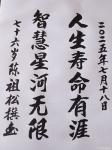 二〇二五年七月十八日
人生寿命有涯
智慧星河无限
七十六岁陈祖松撰书